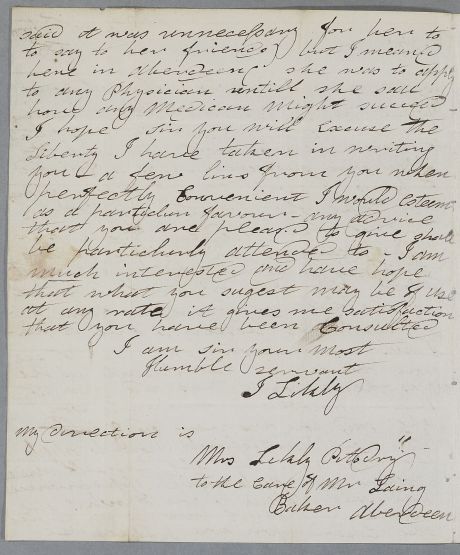 said it was unnecessary for her to
to say to her friends but I meand
here in Aberdeen she was to apply
to any Physician untill she saw
how any Medican might succeed
I hope sir you will Excuse the
Liberty I have taken in writing
you a few lins from you when
perfectly Convenient I would Esteam
as a particulur favour any advice
that you are pleased to give shall
be particulurly attended to I am
much interested and have hope
that what you sugest may be of use
at any rate it gives me satisfaction
that you have been Consulted
I am sir your most
Humble servant
I Likly
My direction is
Mrs Likly
to the Care of Mr Laing
Baker Aberdeen